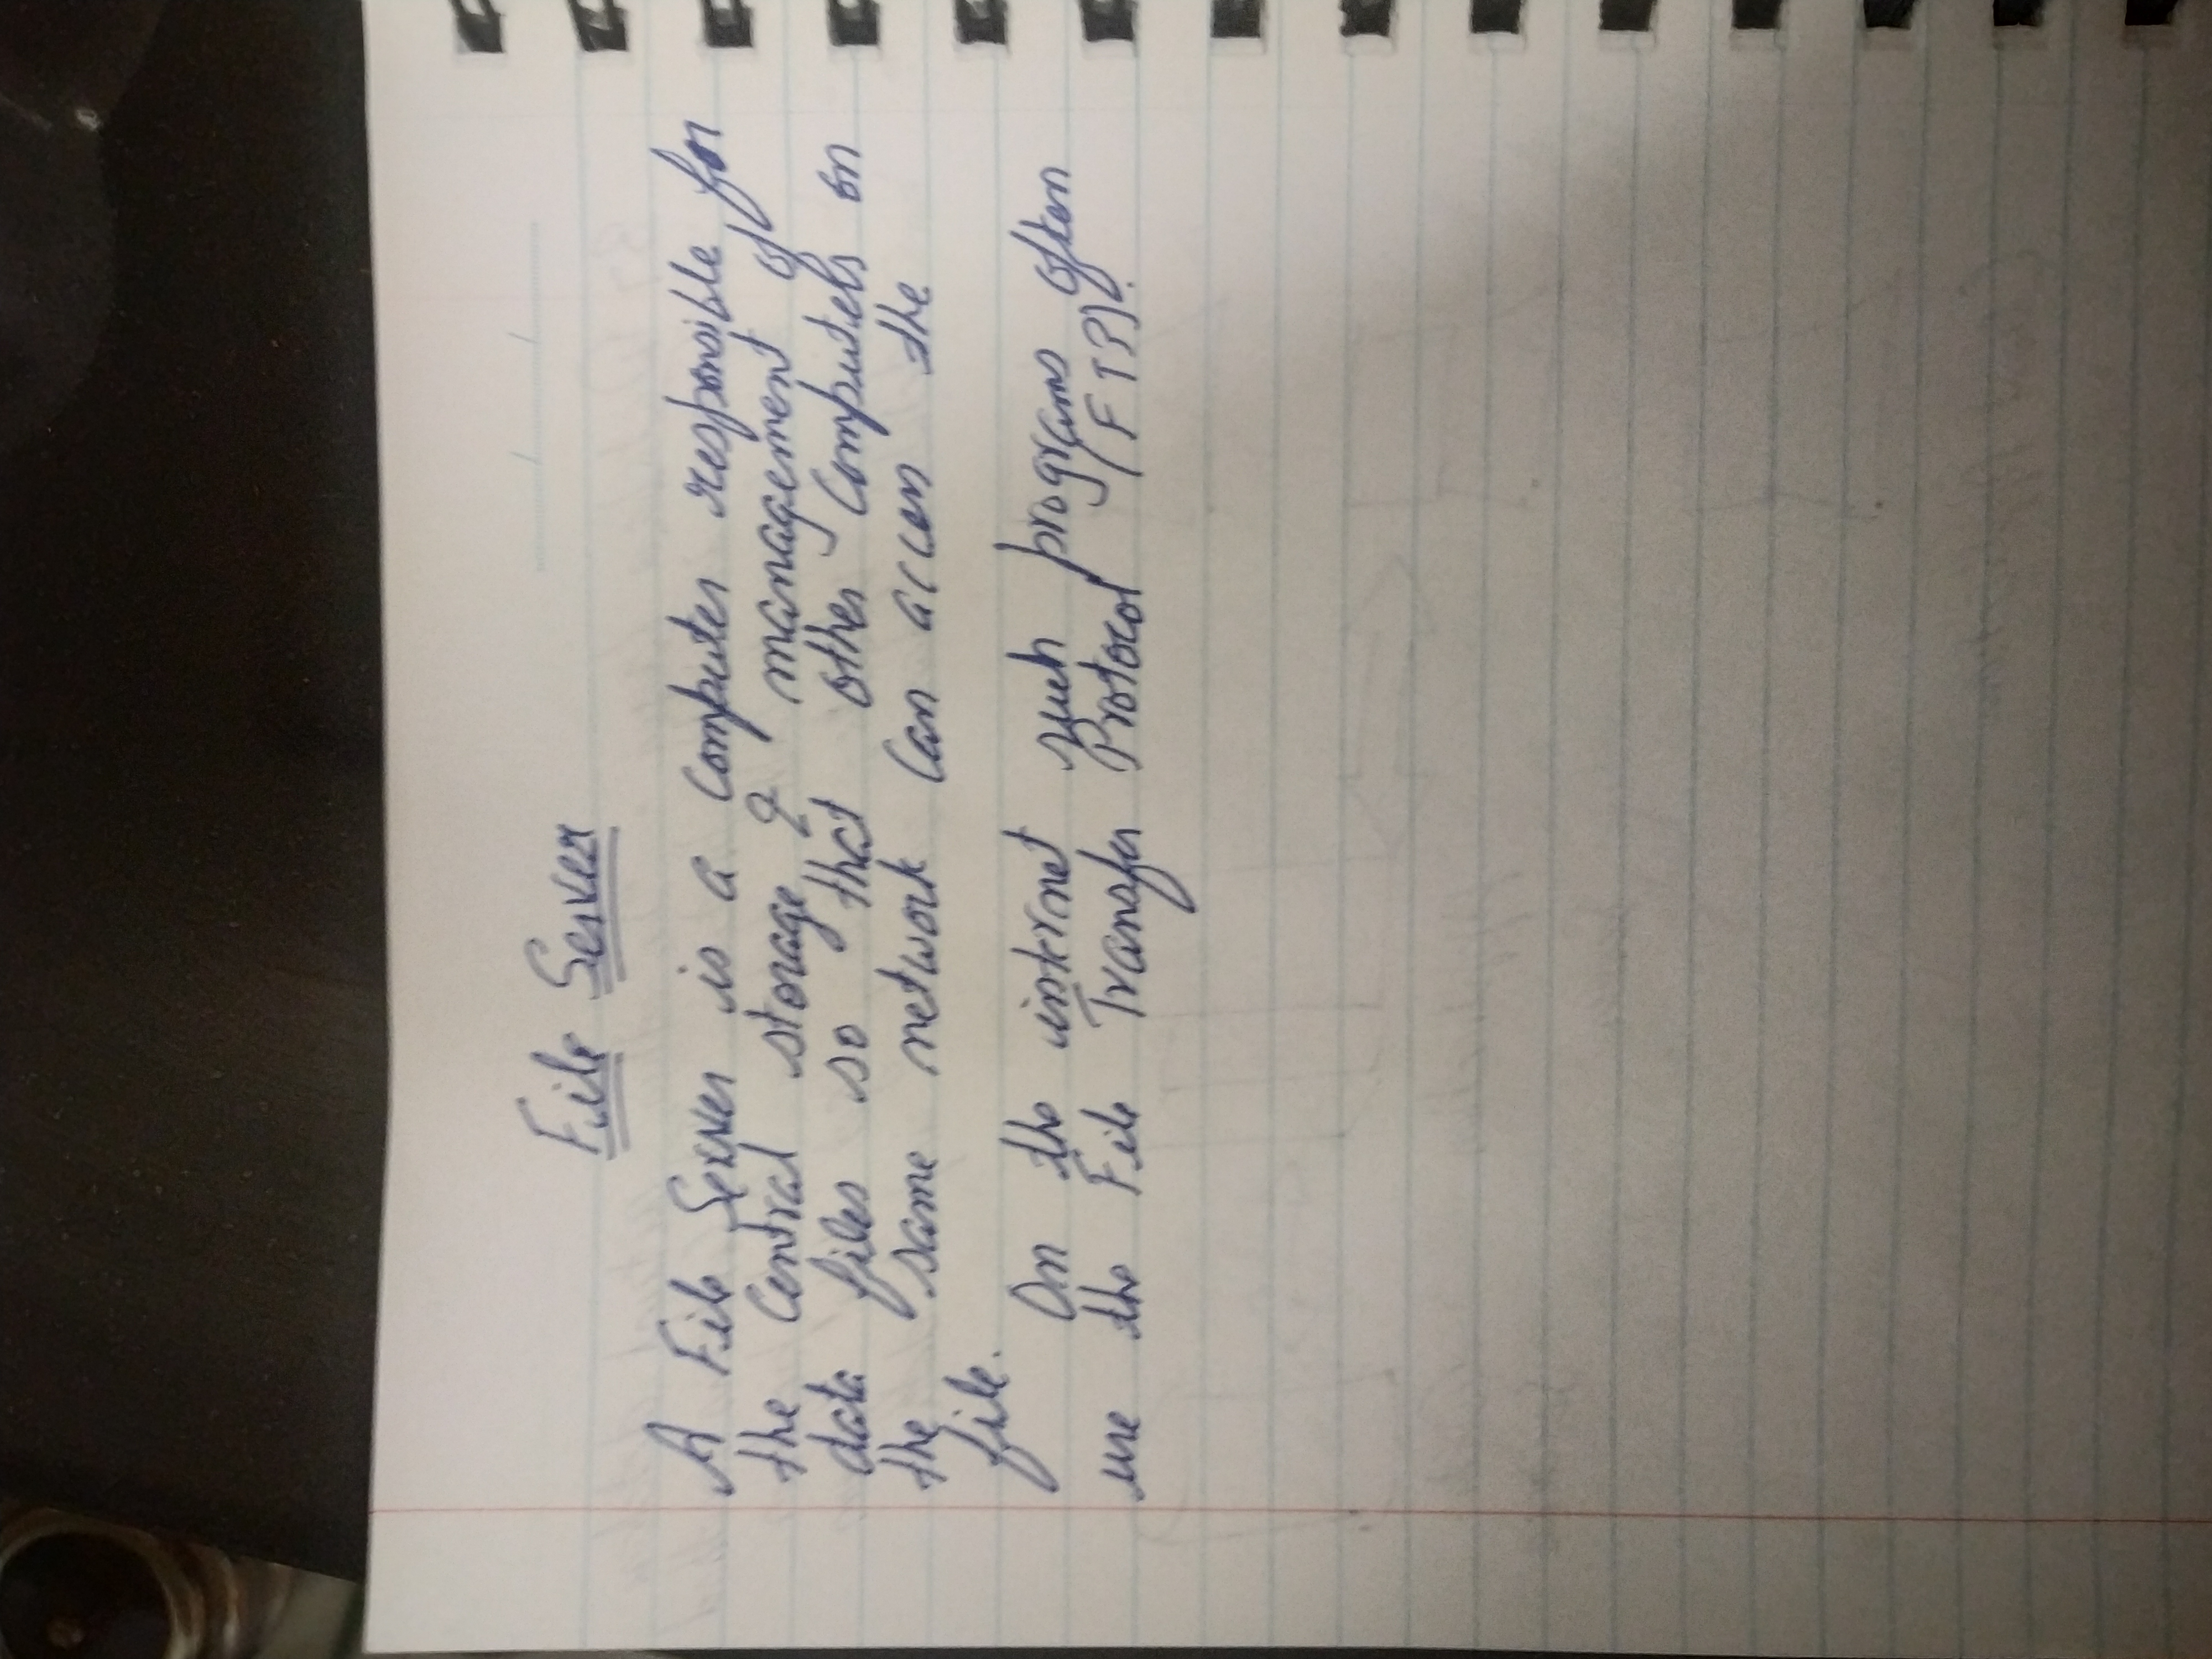 File Server
A File Server is a Computer responsible for
the Central storage & management of
data files so that other Computers on
the same network Can access the
file.
On the internet such programs often
use the File Transfer Protocol (FTP).